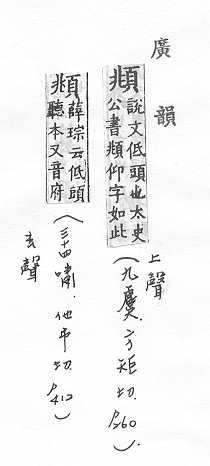 廣韻
頫說文低頭也太史
公書頫仰字如此
上聲
(九麌.方矩切.P260).
頫薛琮云低頭
聽本又音府
(三十四嘯.他弔切.P412)
去聲